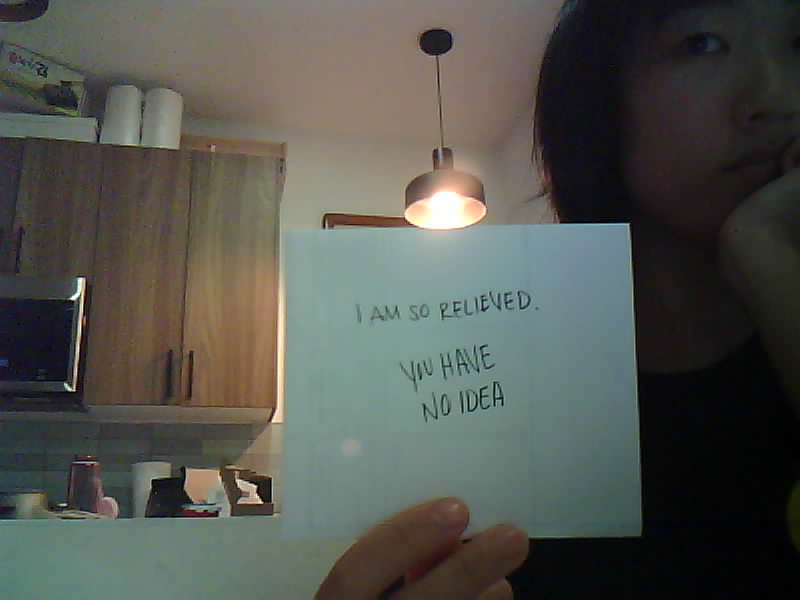 I AM SO RELIEVED.
YOU HAVE
NO IDEA